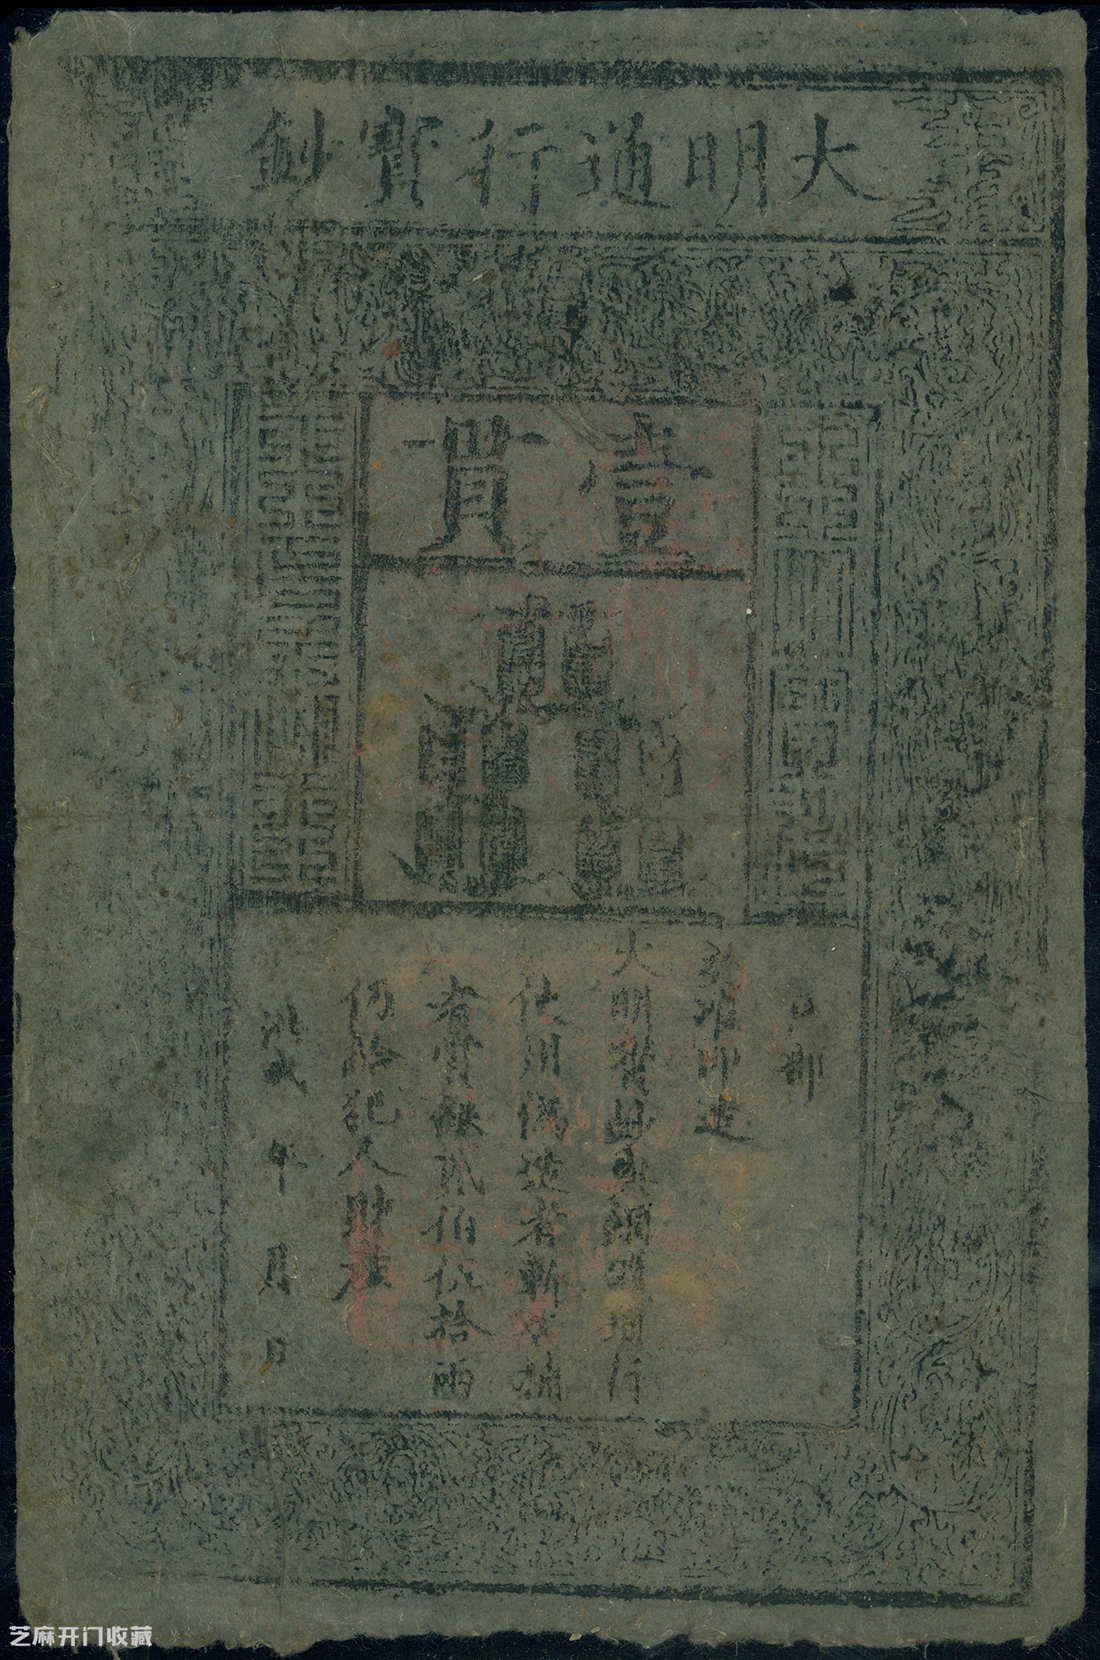 大明通行寶鈔
壹貫
大明寶鈔
天下通行
戶部
奏准印造
大明寶鈔與銅錢通行
使用偽造者斬告捕
者賞銀貳伯伍拾兩
仍給犯人財產
洪武 年 月 日
芝麻开门收藏